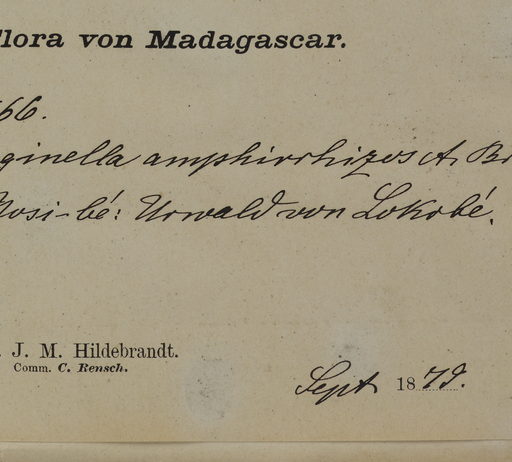 Flora von Madagascar.
66.
ginella amphirrhizos A. Br
Nosi-bé: Urwald von Lokobé.
J. M. Hildebrandt.
Comm. C. Rensch.
Sept 1879.